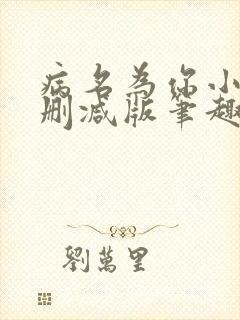 病名为你小
删减版笔趣
劉萬里